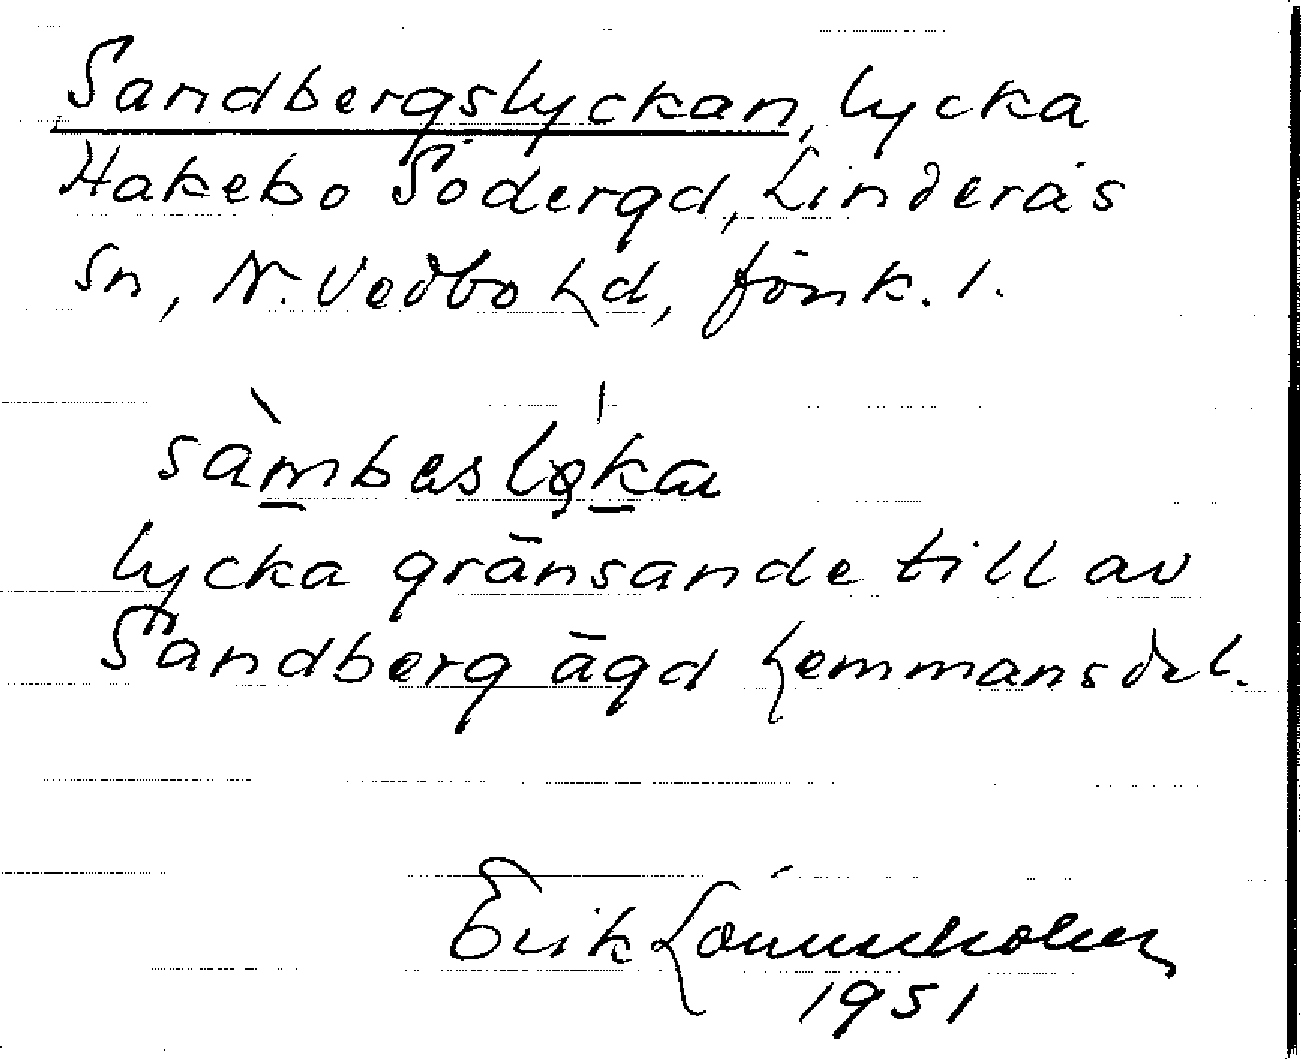 Sandbergslyckan, lycka
Hakebo Södergd, Linderås
Sn, N. Vedbo Hd, Jönk. l.
lycka gränsande till av
Sandberg ägd hemmansdel.
Erik Lönnerholm
1951